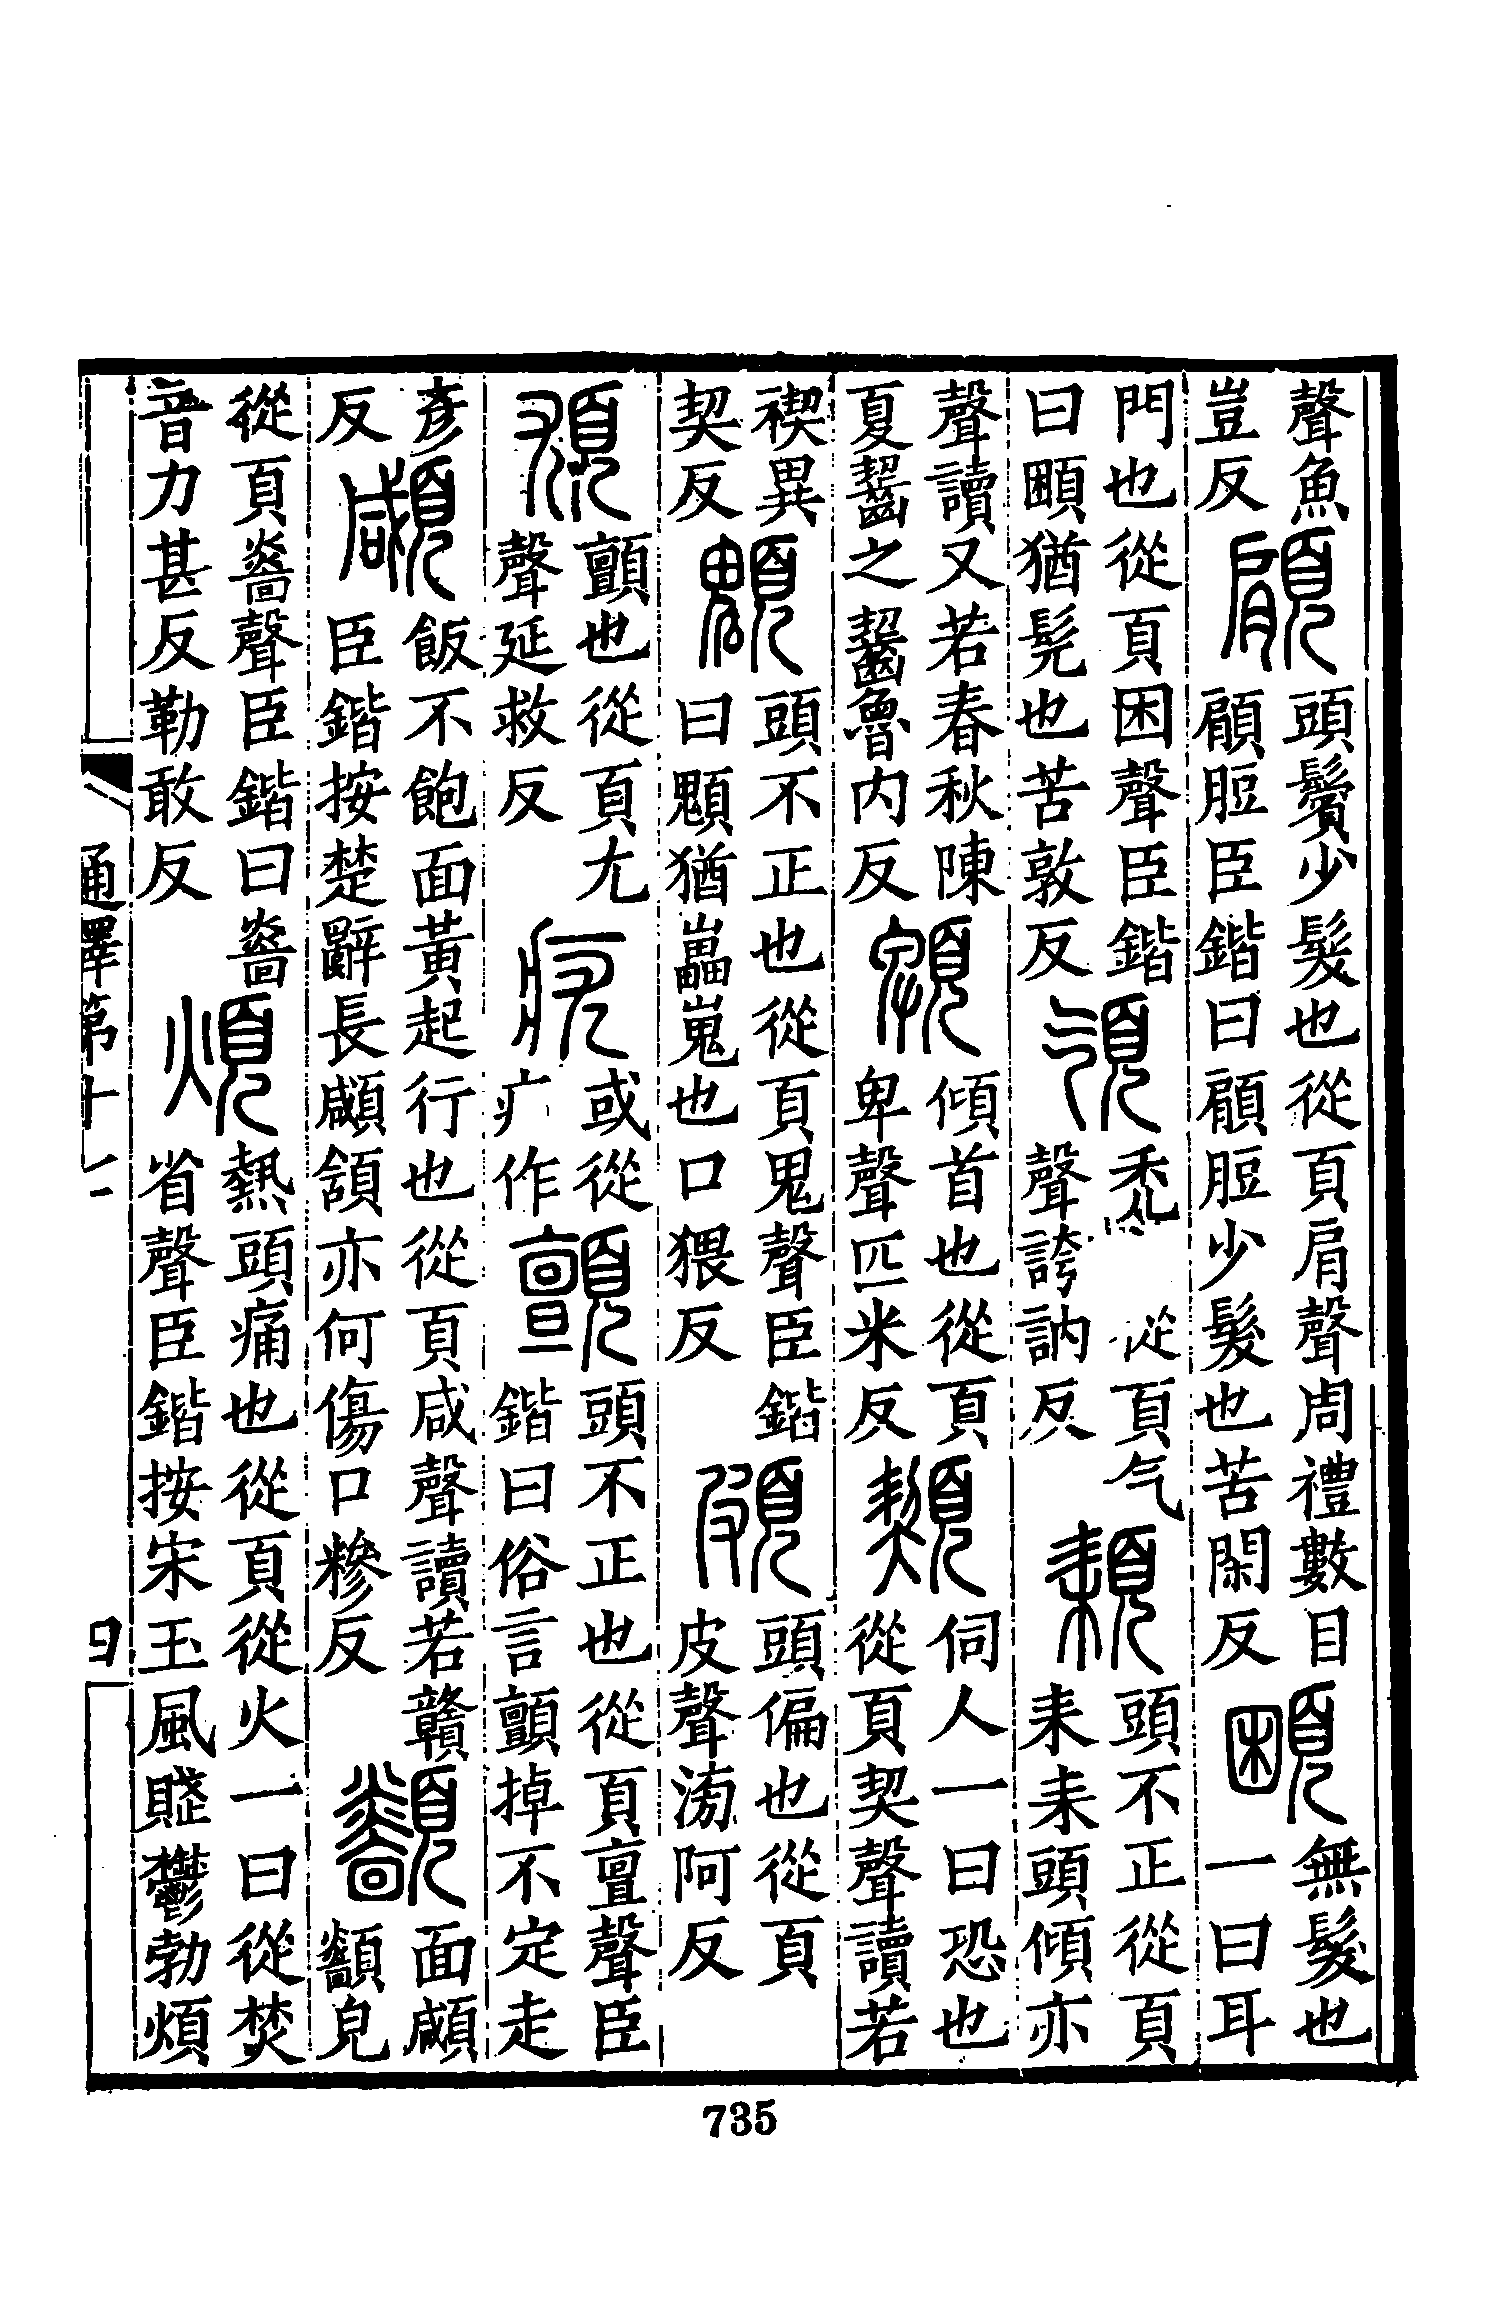 聲魚豈反顅頭鬢少髮也從頁肩聲周禮數目顅脰臣鍇曰顅脰少髮也苦閑反無髮也一曰耳
門也從頁困聲臣鍇曰猶髡也苦敦反禿從頁气聲誇訥反頛頭不正從頁耒耒頭傾亦
聲讀又若春秋陳夏齧之齧魯內反䫌傾首也從頁卑聲匹米反䫔伺人一曰恐也從頁契聲讀若
禊異契反䫥頭不正也從頁鬼聲臣鍇曰䫥猶嵬也口猥反頗頭偏也從頁皮聲滂阿反
顫也從頁尤聲延救反疣或從疒作顫頭不正也從頁亶聲臣鍇曰俗言顫掉不定走
彥反顑飯不飽面黃起行也從頁咸聲讀若贛臣鍇按楚辭長顑頷亦何傷口糝反顲面顑顲皃
從頁㐭聲臣鍇曰㐭音力甚反勒敢反煩熱頭痛也從頁從火一曰從焚省聲臣鍇按宋玉風賦鬱勃煩
通釋第十
735